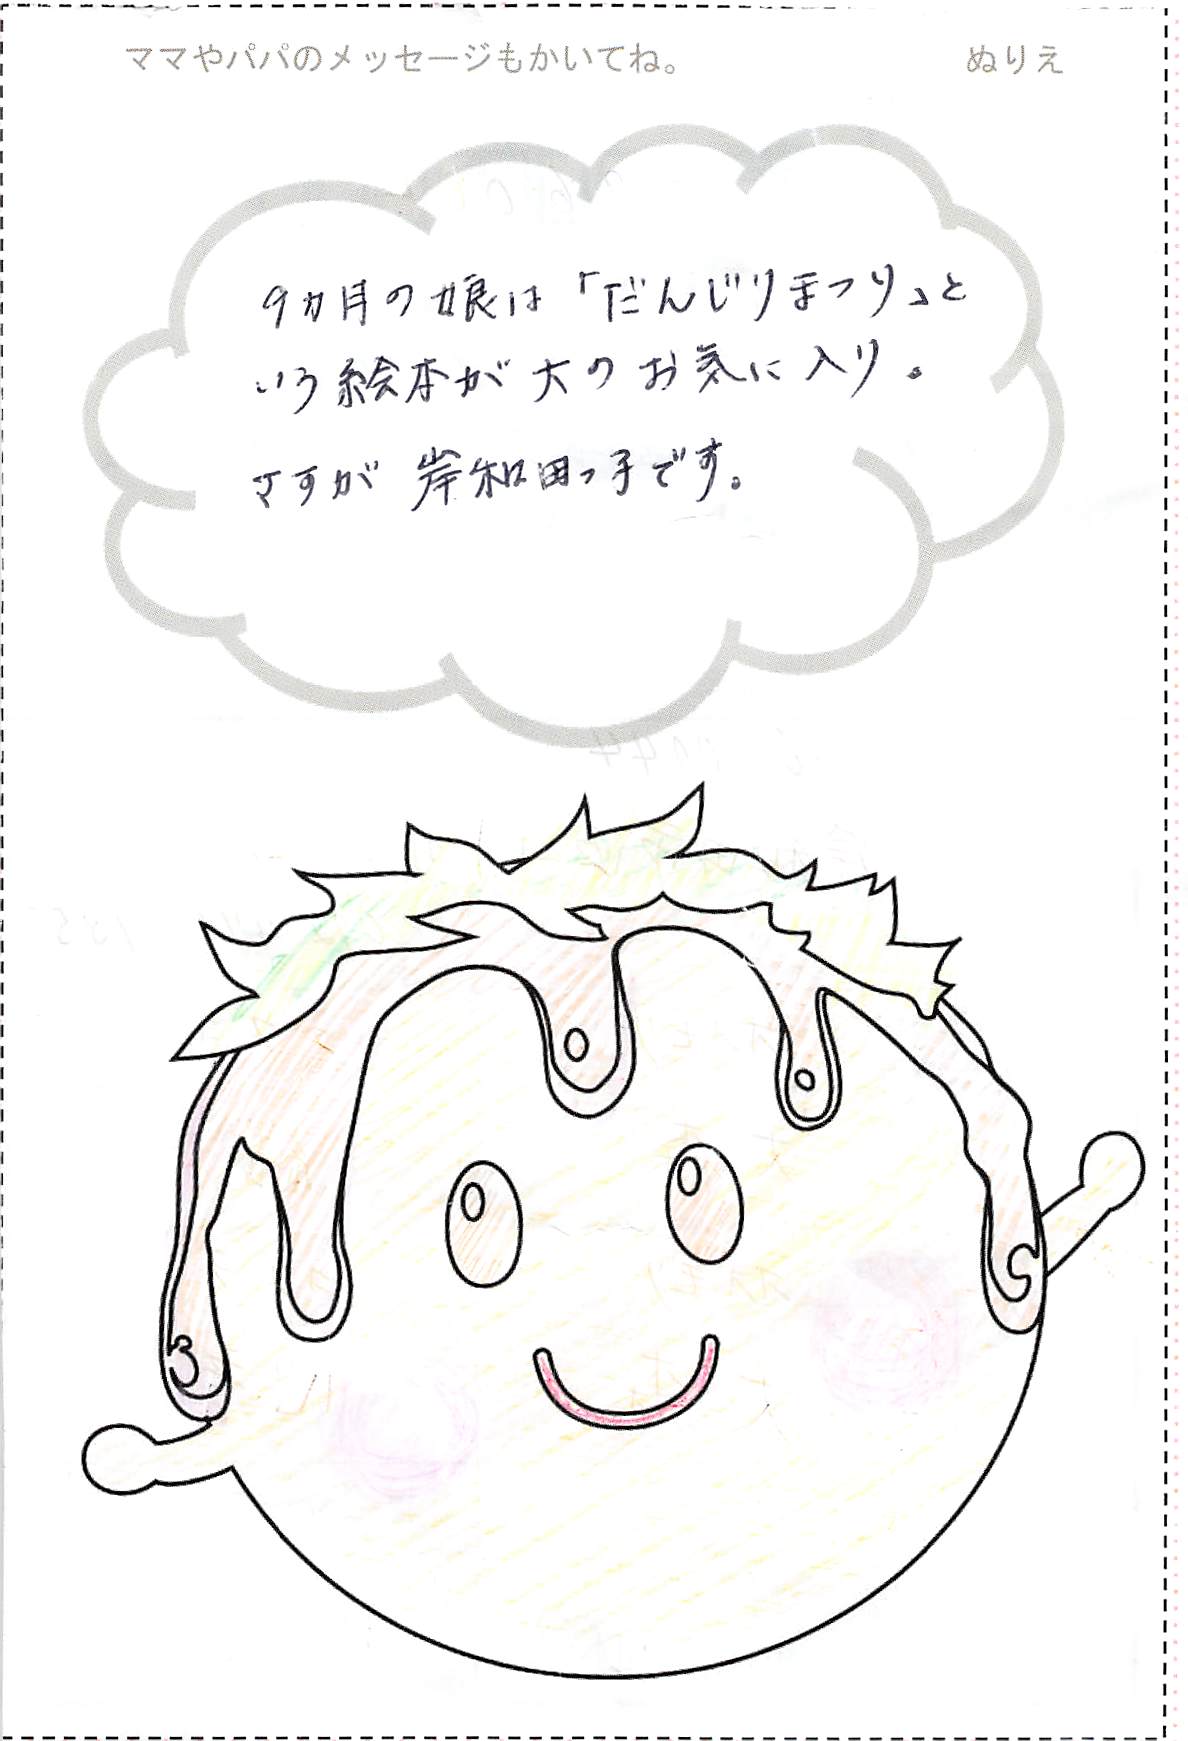 ママやパパのメッセージもかいてね。
ぬりえ
9カ月の娘は「だんじりまつり」と
いう絵本が大のお気に入り。
さすが岸和田っ子です。